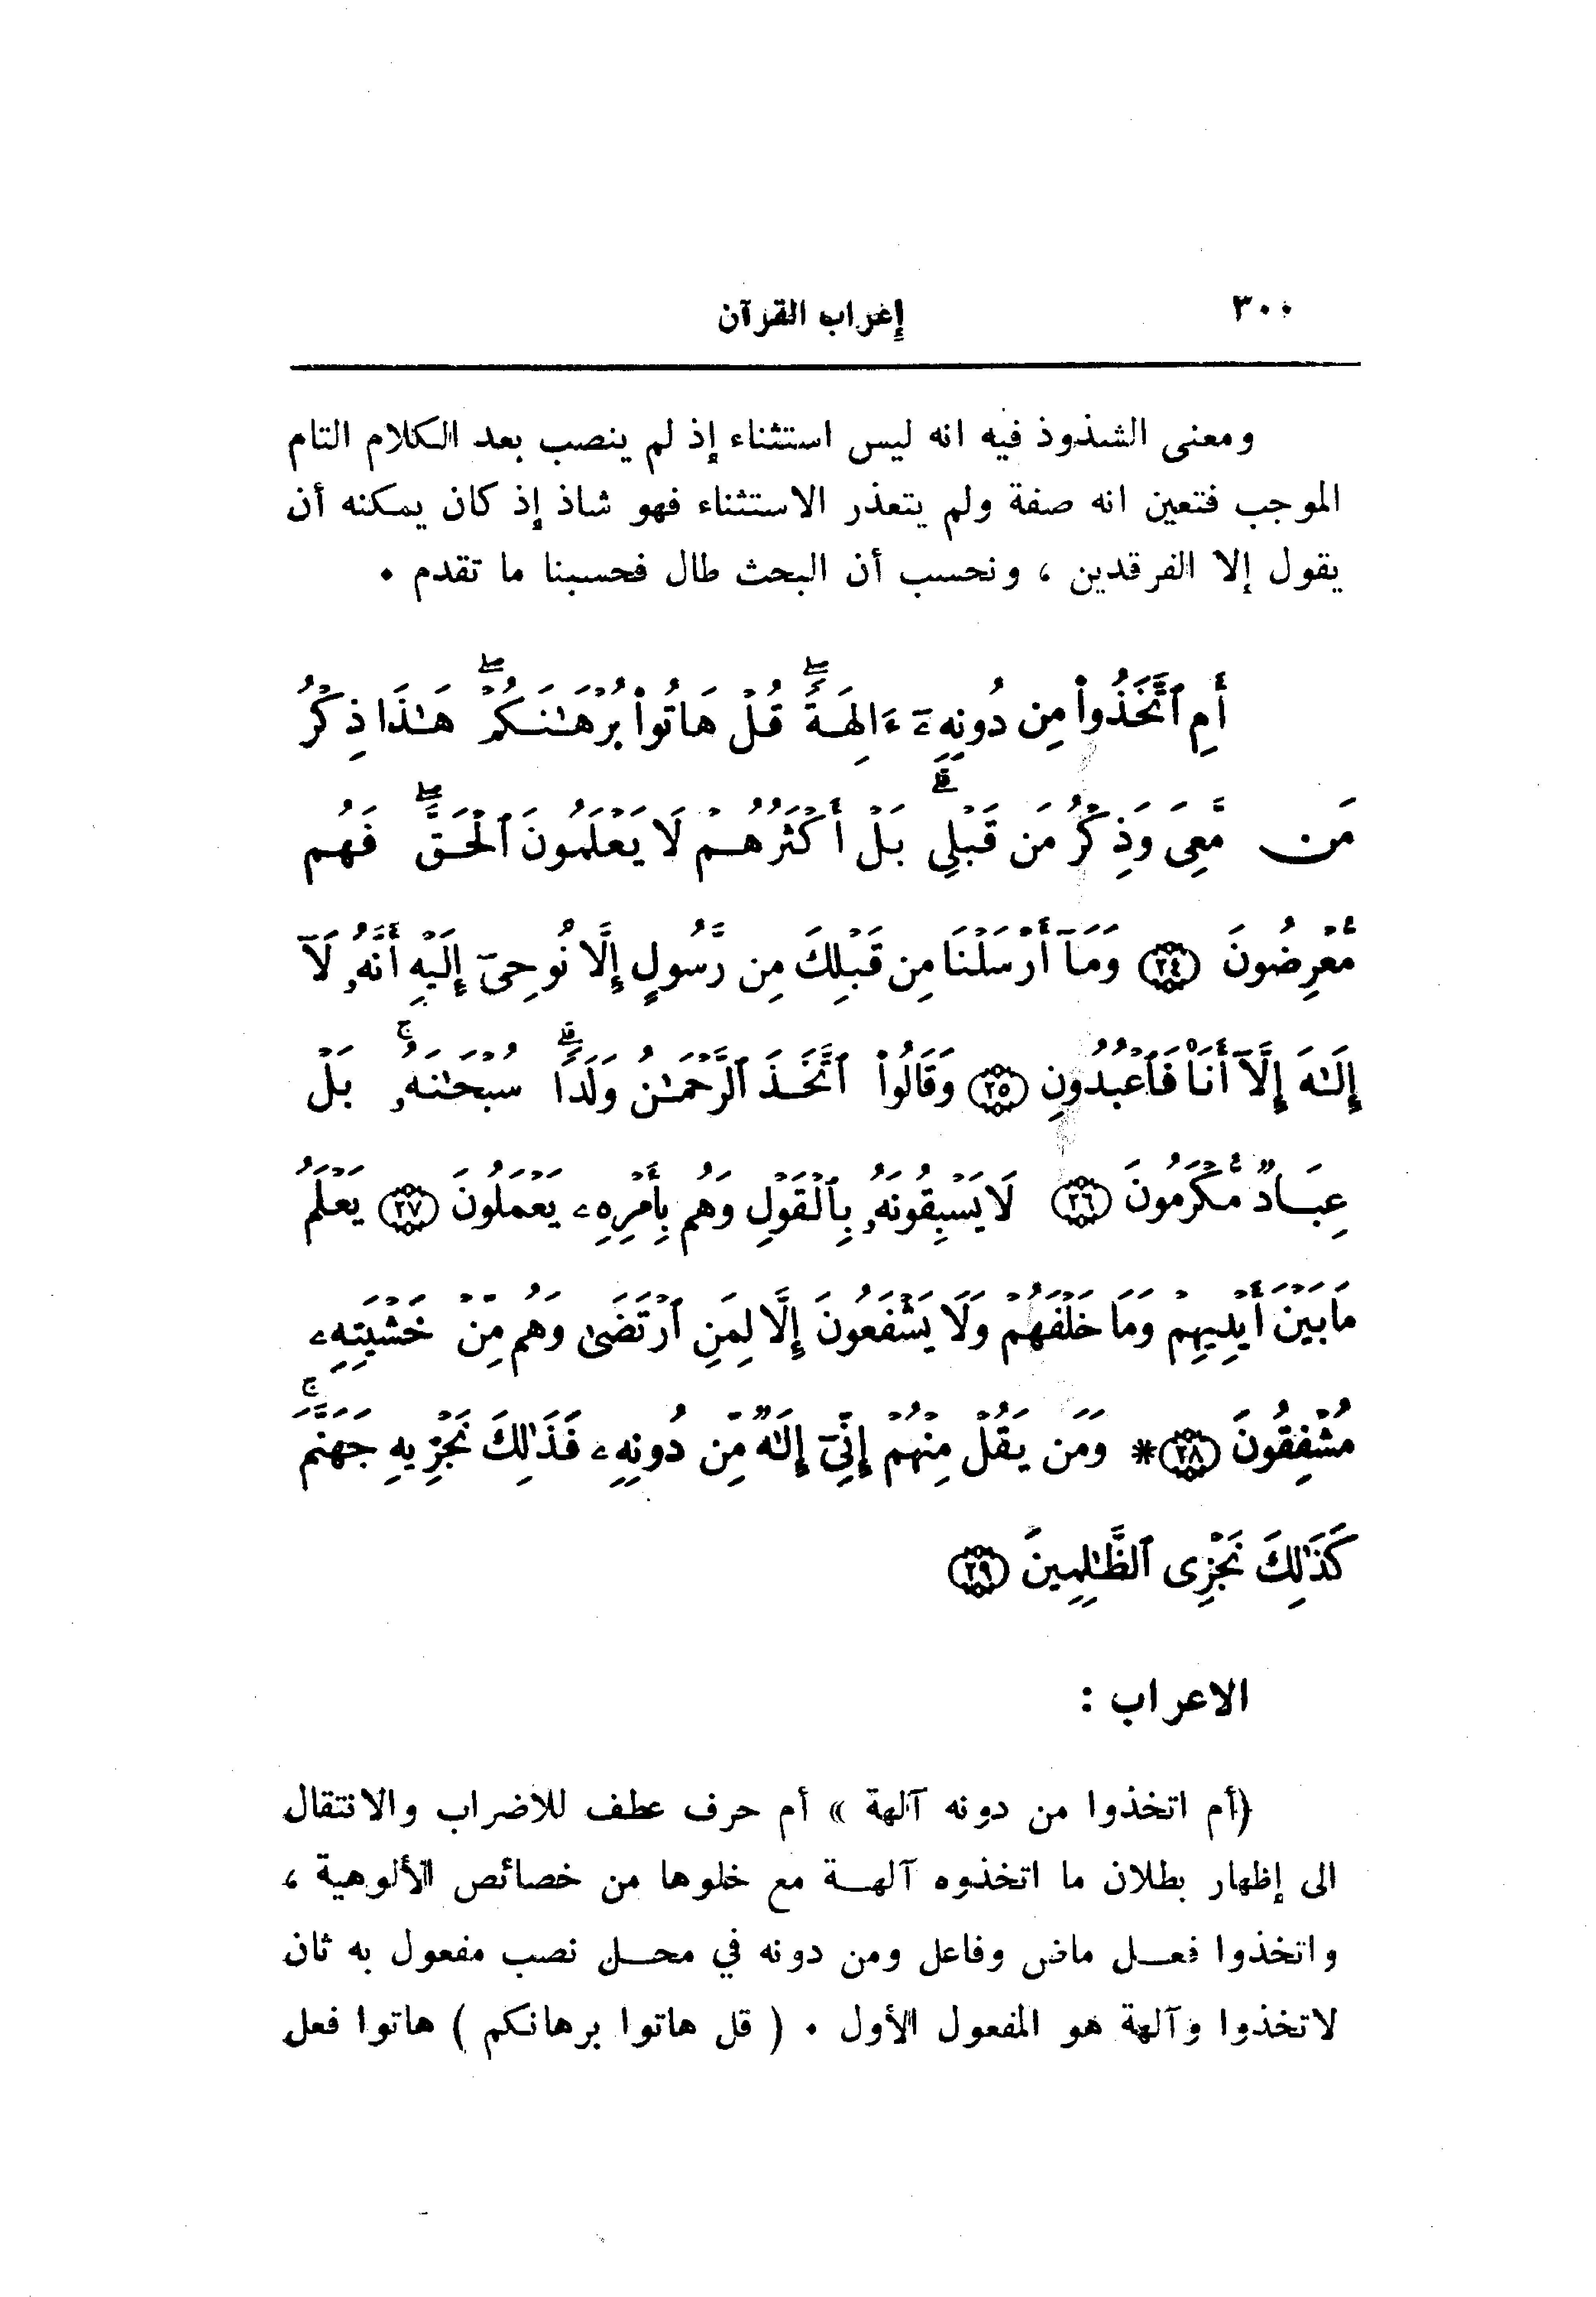 ٣٠٠ إعراب القرآن
ومعنى الشذوذ فيه انه ليس استثناء إذ لم ينصب بعد الكلام التام
الموجب فتعين انه صفة ولم يتعذر الاستثناء فهو شاذ إذ كان يمكنه أن
يقول إلا الفرقدين ، ونحسب أن البحث طال فحسبنا ما تقدم ٠
أَمِ ٱتَّخَذُوا۟ مِن دُونِهِۦٓ ءَالِهَةً ۖ قُلْ هَاتُوا۟ بُرْهَـٰنَكُمْ ۖ هَـٰذَا ذِكْرُ
مَن مَّعِىَ وَذِكْرُ مَن قَبْلِى ۗ بَلْ أَكْثَرُهُمْ لَا يَعْلَمُونَ ٱلْحَقَّ ۖ فَهُم
مُّعْرِضُونَ ﴿٢٤﴾ وَمَآ أَرْسَلْنَا مِن قَبْلِكَ مِن رَّسُولٍ إِلَّا نُوحِىٓ إِلَيْهِ أَنَّهُۥ لَآ
إِلَـٰهَ إِلَّآ أَنَا۠ فَٱعْبُدُونِ ﴿٢٥﴾ وَقَالُوا۟ ٱتَّخَذَ ٱلرَّحْمَـٰنُ وَلَدًا ۗ سُبْحَـٰنَهُۥ ۚ بَلْ
عِبَادٌ مُّكْرَمُونَ ﴿٢٦﴾ لَا يَسْبِقُونَهُۥ بِٱلْقَوْلِ وَهُم بِأَمْرِهِۦ يَعْمَلُونَ ﴿٢٧﴾ يَعْلَمُ
مَا بَيْنَ أَيْدِيهِمْ وَمَا خَلْفَهُمْ وَلَا يَشْفَعُونَ إِلَّا لِمَنِ ٱرْتَضَىٰ وَهُم مِّنْ خَشْيَتِهِۦ
مُشْفِقُونَ ﴿٢٨﴾ * وَمَن يَقُلْ مِنْهُمْ إِنِّىٓ إِلَـٰهٌ مِّن دُونِهِۦ فَذَٰلِكَ نَجْزِيهِ جَهَنَّمَ ۚ
كَذَٰلِكَ نَجْزِى ٱلظَّـٰلِمِينَ ﴿٢٩﴾
الاعراب :
(أم اتخذوا من دونه آلهة » أم حرف عطف للاضراب والانتقال
الى إظهار بطلان ما اتخذوه آلهـــة مع خلوها من خصائص الألوهية ،
واتخذوا فعـــل ماض وفاعل ومن دونه في محـــل نصب مفعول به ثان
لاتخذوا وآلهة هو المفعول الأول ٠ ( قل هاتوا برهانكم ) هاتوا فعل